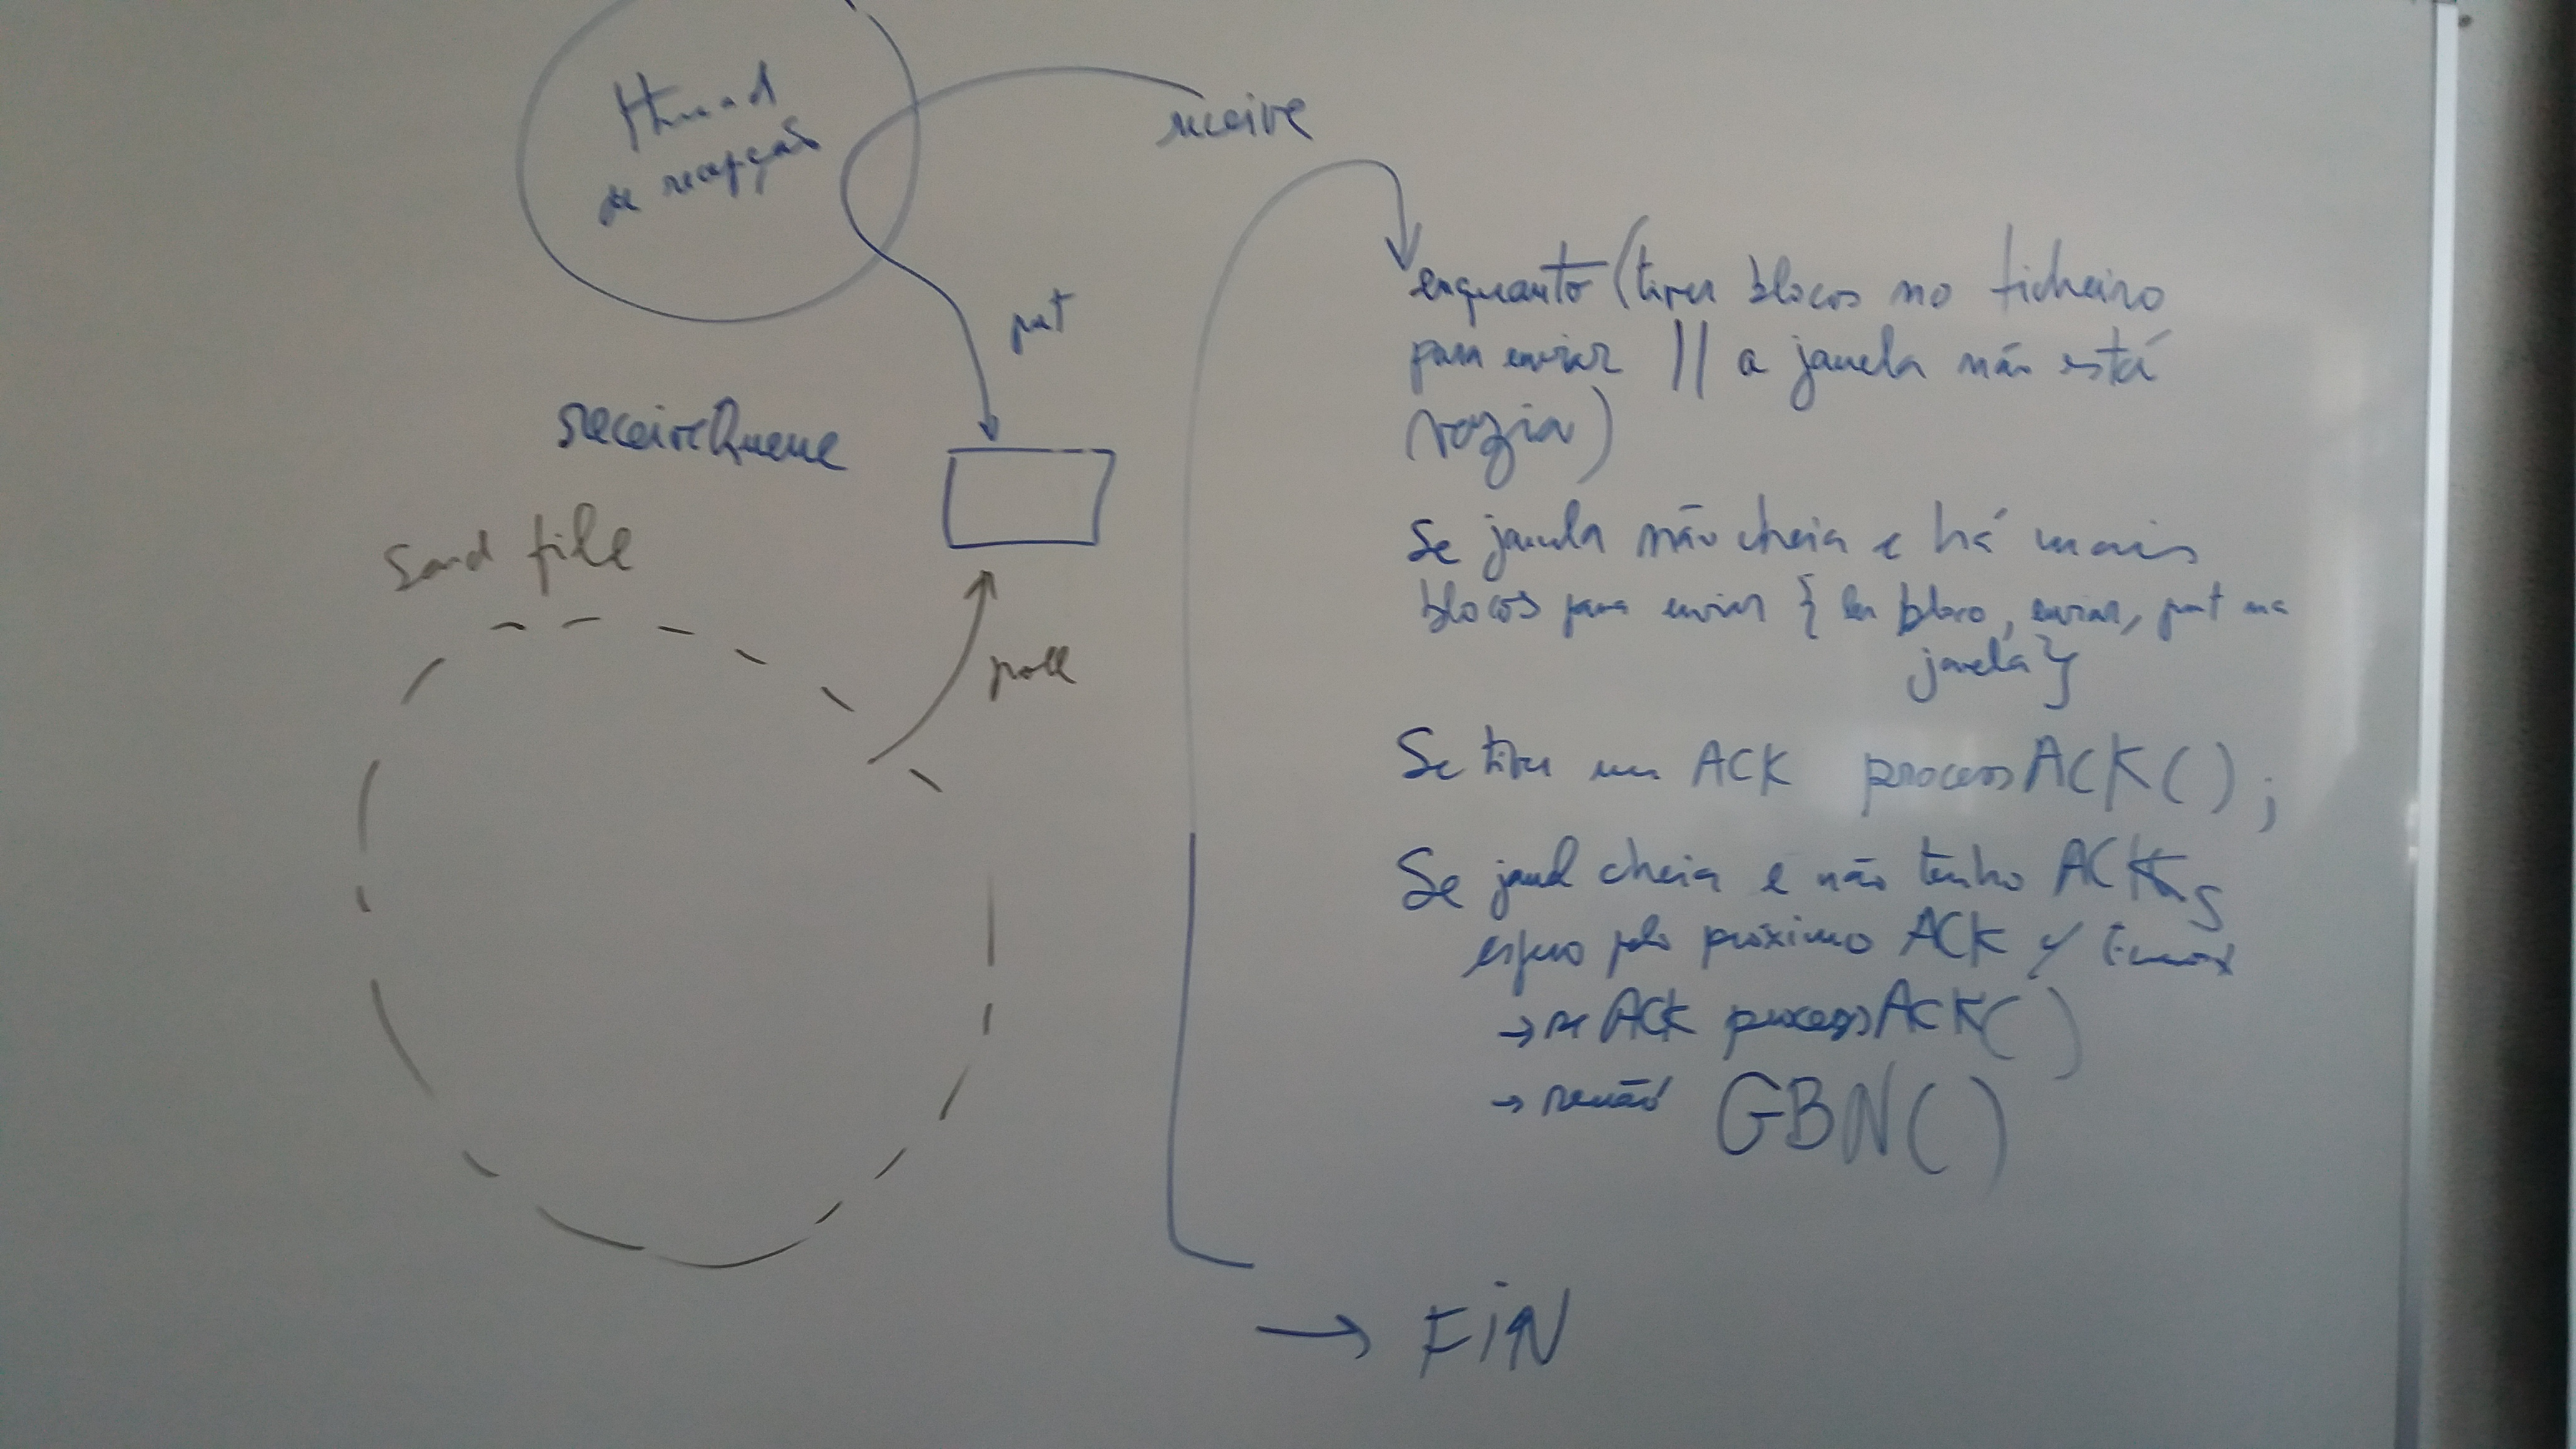 thread
de recepção
receive
put
receiveQueue
Send file
poll
enquanto (tiver blocos no ficheiro
para enviar || a janela não está
vazia)
Se janela não cheia e há mais
blocos para enviar { ler bloco, enviar, put na
janela }
Se tiver um ACK processACK();
Se janel cheia e não tenho ACKs
espero pelo próximo ACK c/ timeout
→ se ACK processACK()
→ senão GBN()
→ FiN